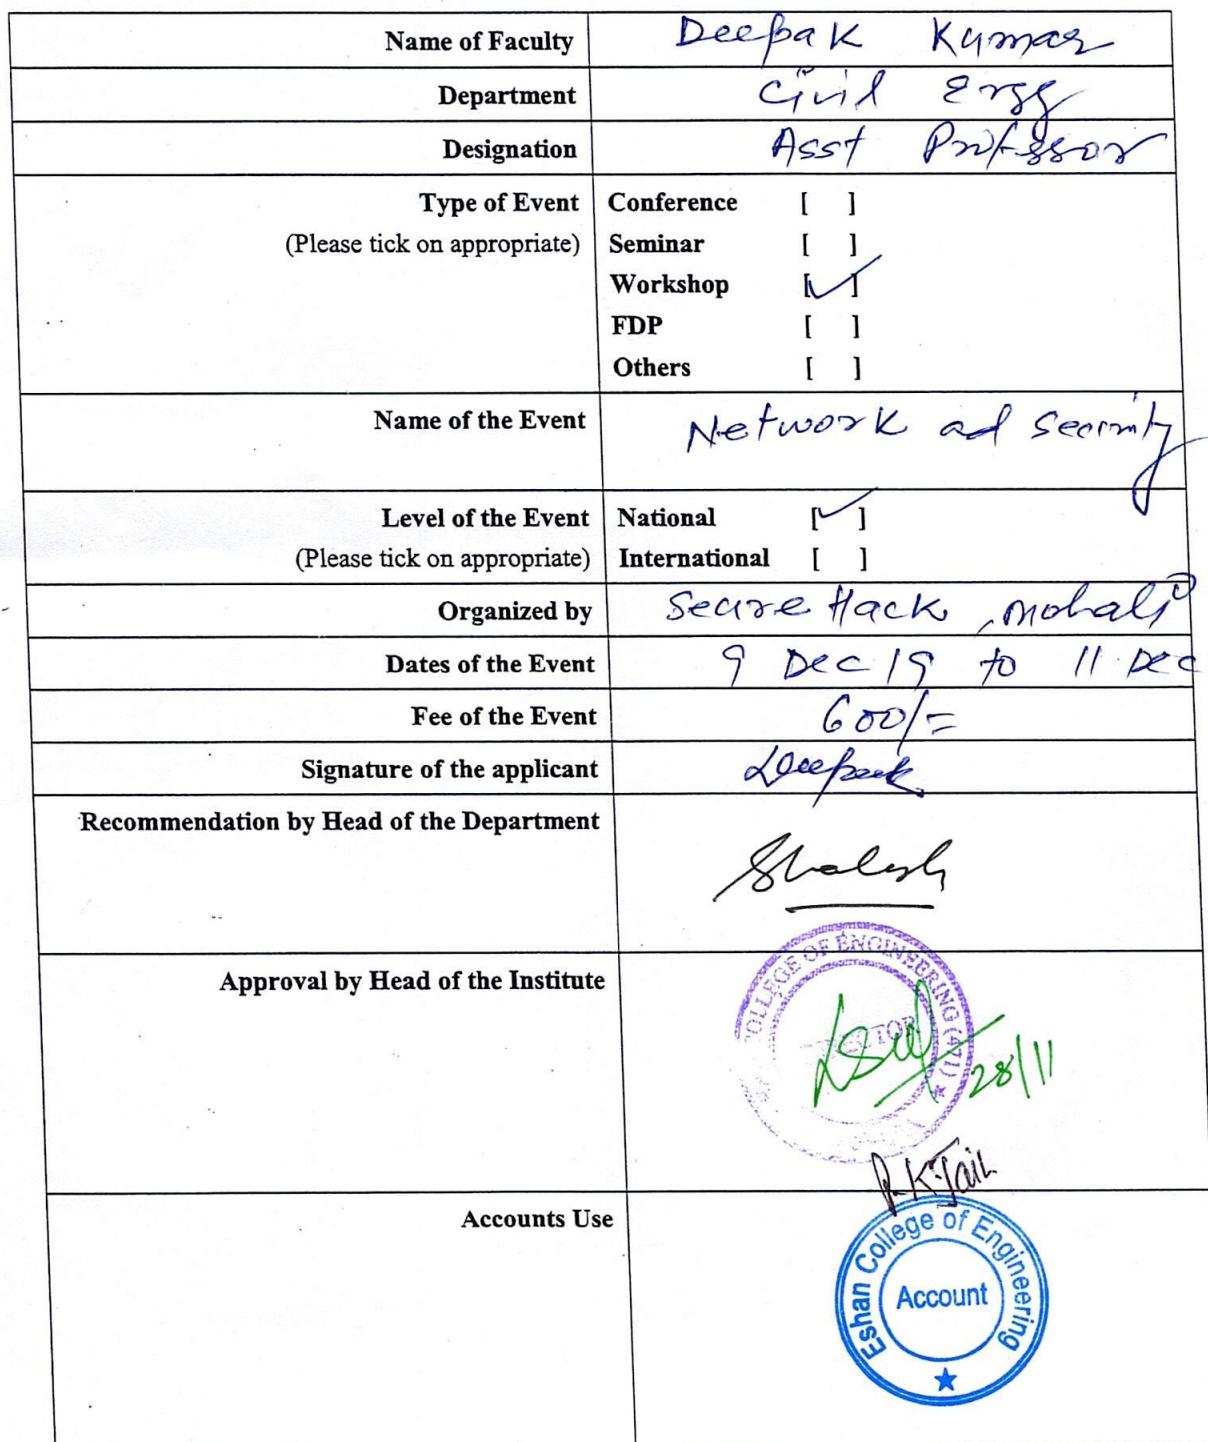 Name of Faculty Deepak Kumar
Department Civil Engg
Designation Asst Professor
Type of Event Conference [ ]
(Please tick on appropriate) Seminar [ ]
Workshop [✓]
FDP [ ]
Others [ ]
Name of the Event Network ad Security
Level of the Event National [✓]
(Please tick on appropriate) International [ ]
Organized by Secure Hack, Mohali
Dates of the Event 9 Dec 19 to 11 Dec
Fee of the Event 600/=
Signature of the applicant Deepak
Recommendation by Head of the Department
COLLEGE OF ENGINEERING (471) ★
Approval by Head of the Institute
DIRECTOR
28/11
R.K. Jain
Accounts Use
Eshan College of Engineering
Account